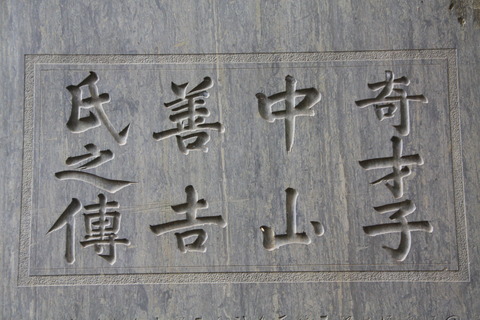 奇才子
中山
善𠮷
氏之傳